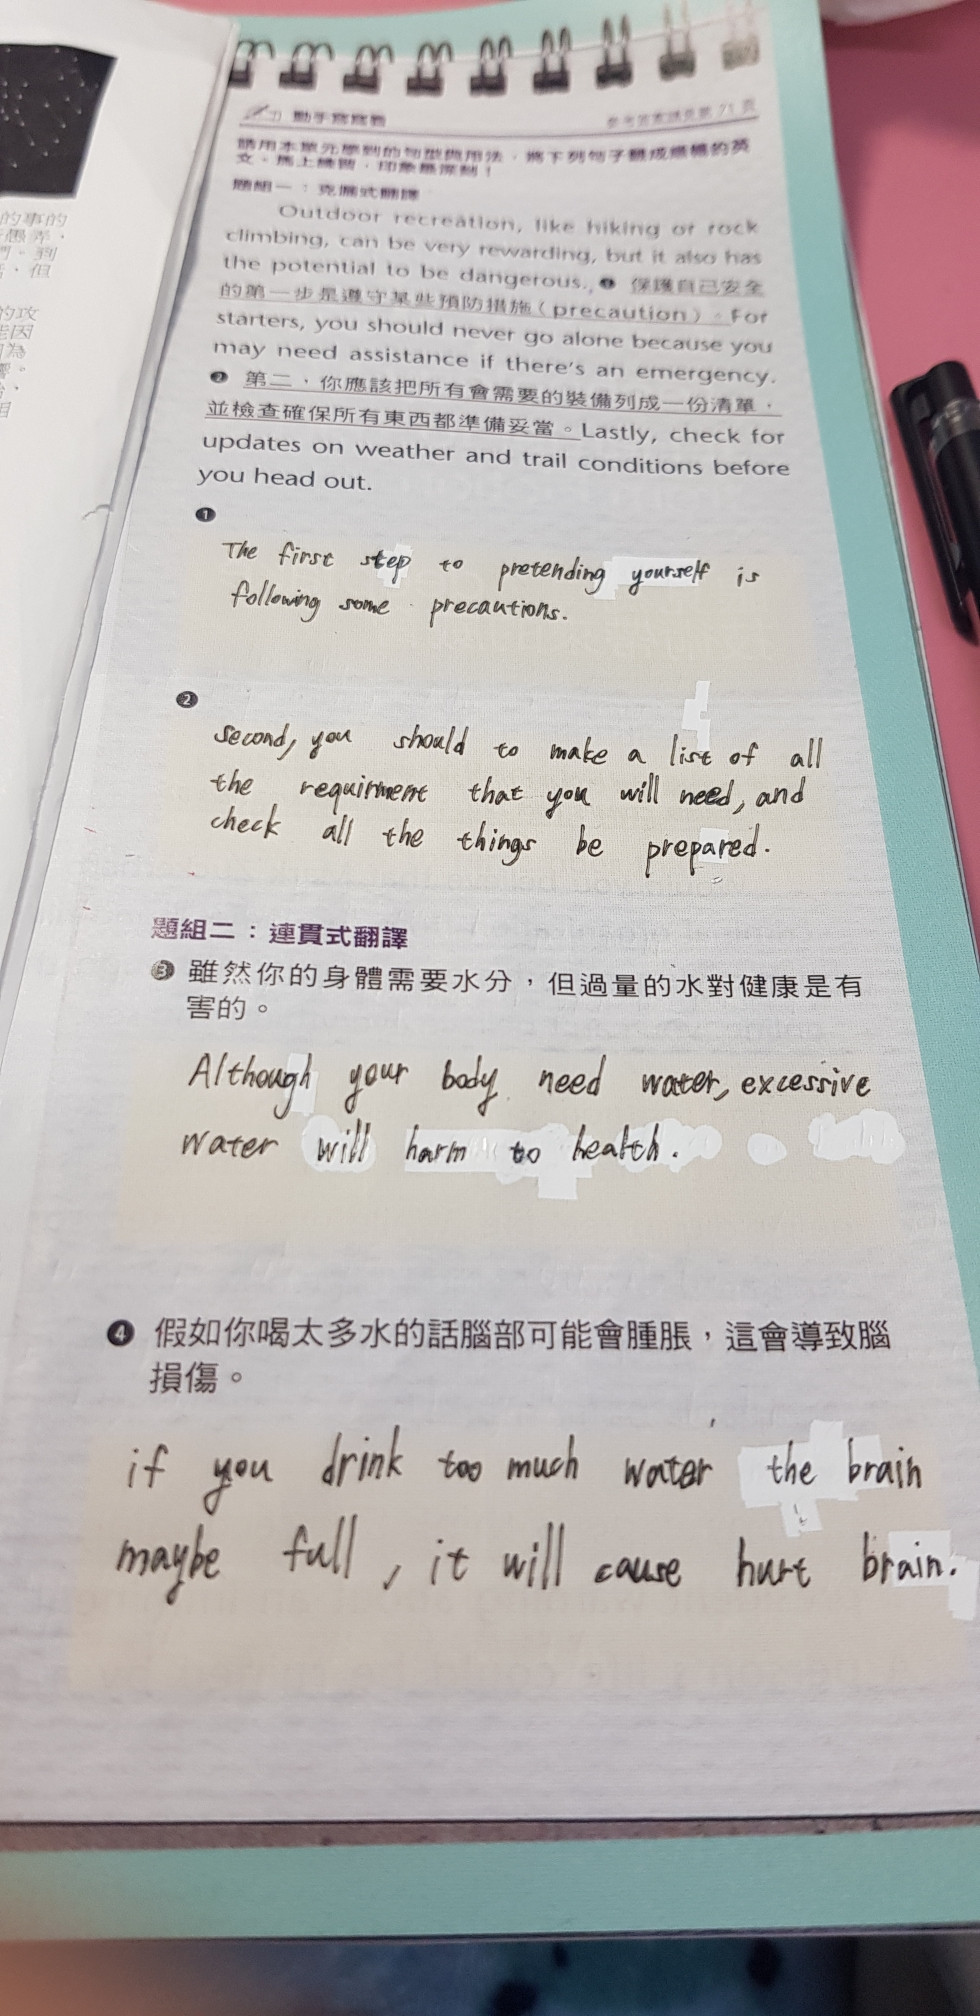 動手寫寫看
參考答案請見第 71 頁
請用本單元學到的句型與用法，將下列句子翻成順暢的英
文。馬上練習，印象最深刻！
題組一：克漏式翻譯
Outdoor recreation, like hiking or rock
climbing, can be very rewarding, but it also has
the potential to be dangerous. ❶ 保護自己安全
的第一步是遵守某些預防措施（precaution）。For
starters, you should never go alone because you
may need assistance if there's an emergency.
❷ 第二，你應該把所有會需要的裝備列成一份清單，
並檢查確保所有東西都準備妥當。Lastly, check for
updates on weather and trail conditions before
you head out.
❶
The first step to pretending yourself is
following some precautions.
❷
Second, you should to make a list of all
the requirment that you will need, and
check all the things be prepared.
題組二：連貫式翻譯
❸ 雖然你的身體需要水分，但過量的水對健康是有
害的。
Although your body need water, excessive
water will harm to health.
❹ 假如你喝太多水的話腦部可能會腫脹，這會導致腦
損傷。
if you drink too much water the brain
maybe full, it will cause hurt brain.